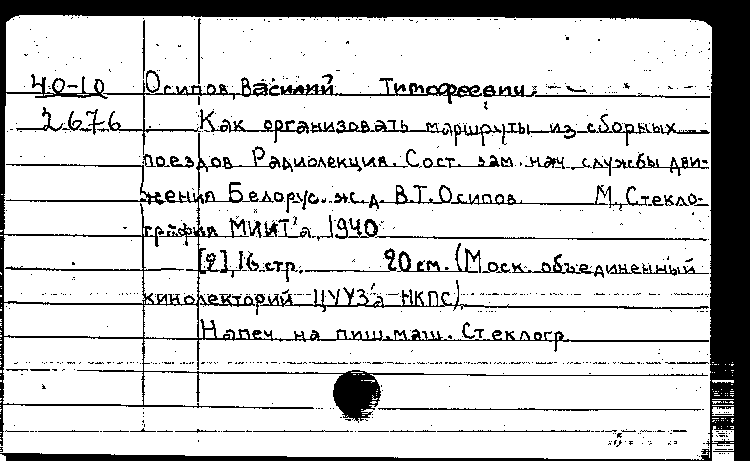 40-10 Осипов, Василий Тимофеевич.
2676 Как организовать маршруты из сборных
поездов. Радиолекция. Сост. зам. нач. службы дви-
жения Белорус. ж. д. В.Т. Осипов. М., Стекло-
графия МИИТ'а, 1940
[2], 16 стр. 20 см. (Моск. объединенный
кинолекторий ЦУУЗ'а НКПС).
Напеч. на пиш. маш. Стеклогр.